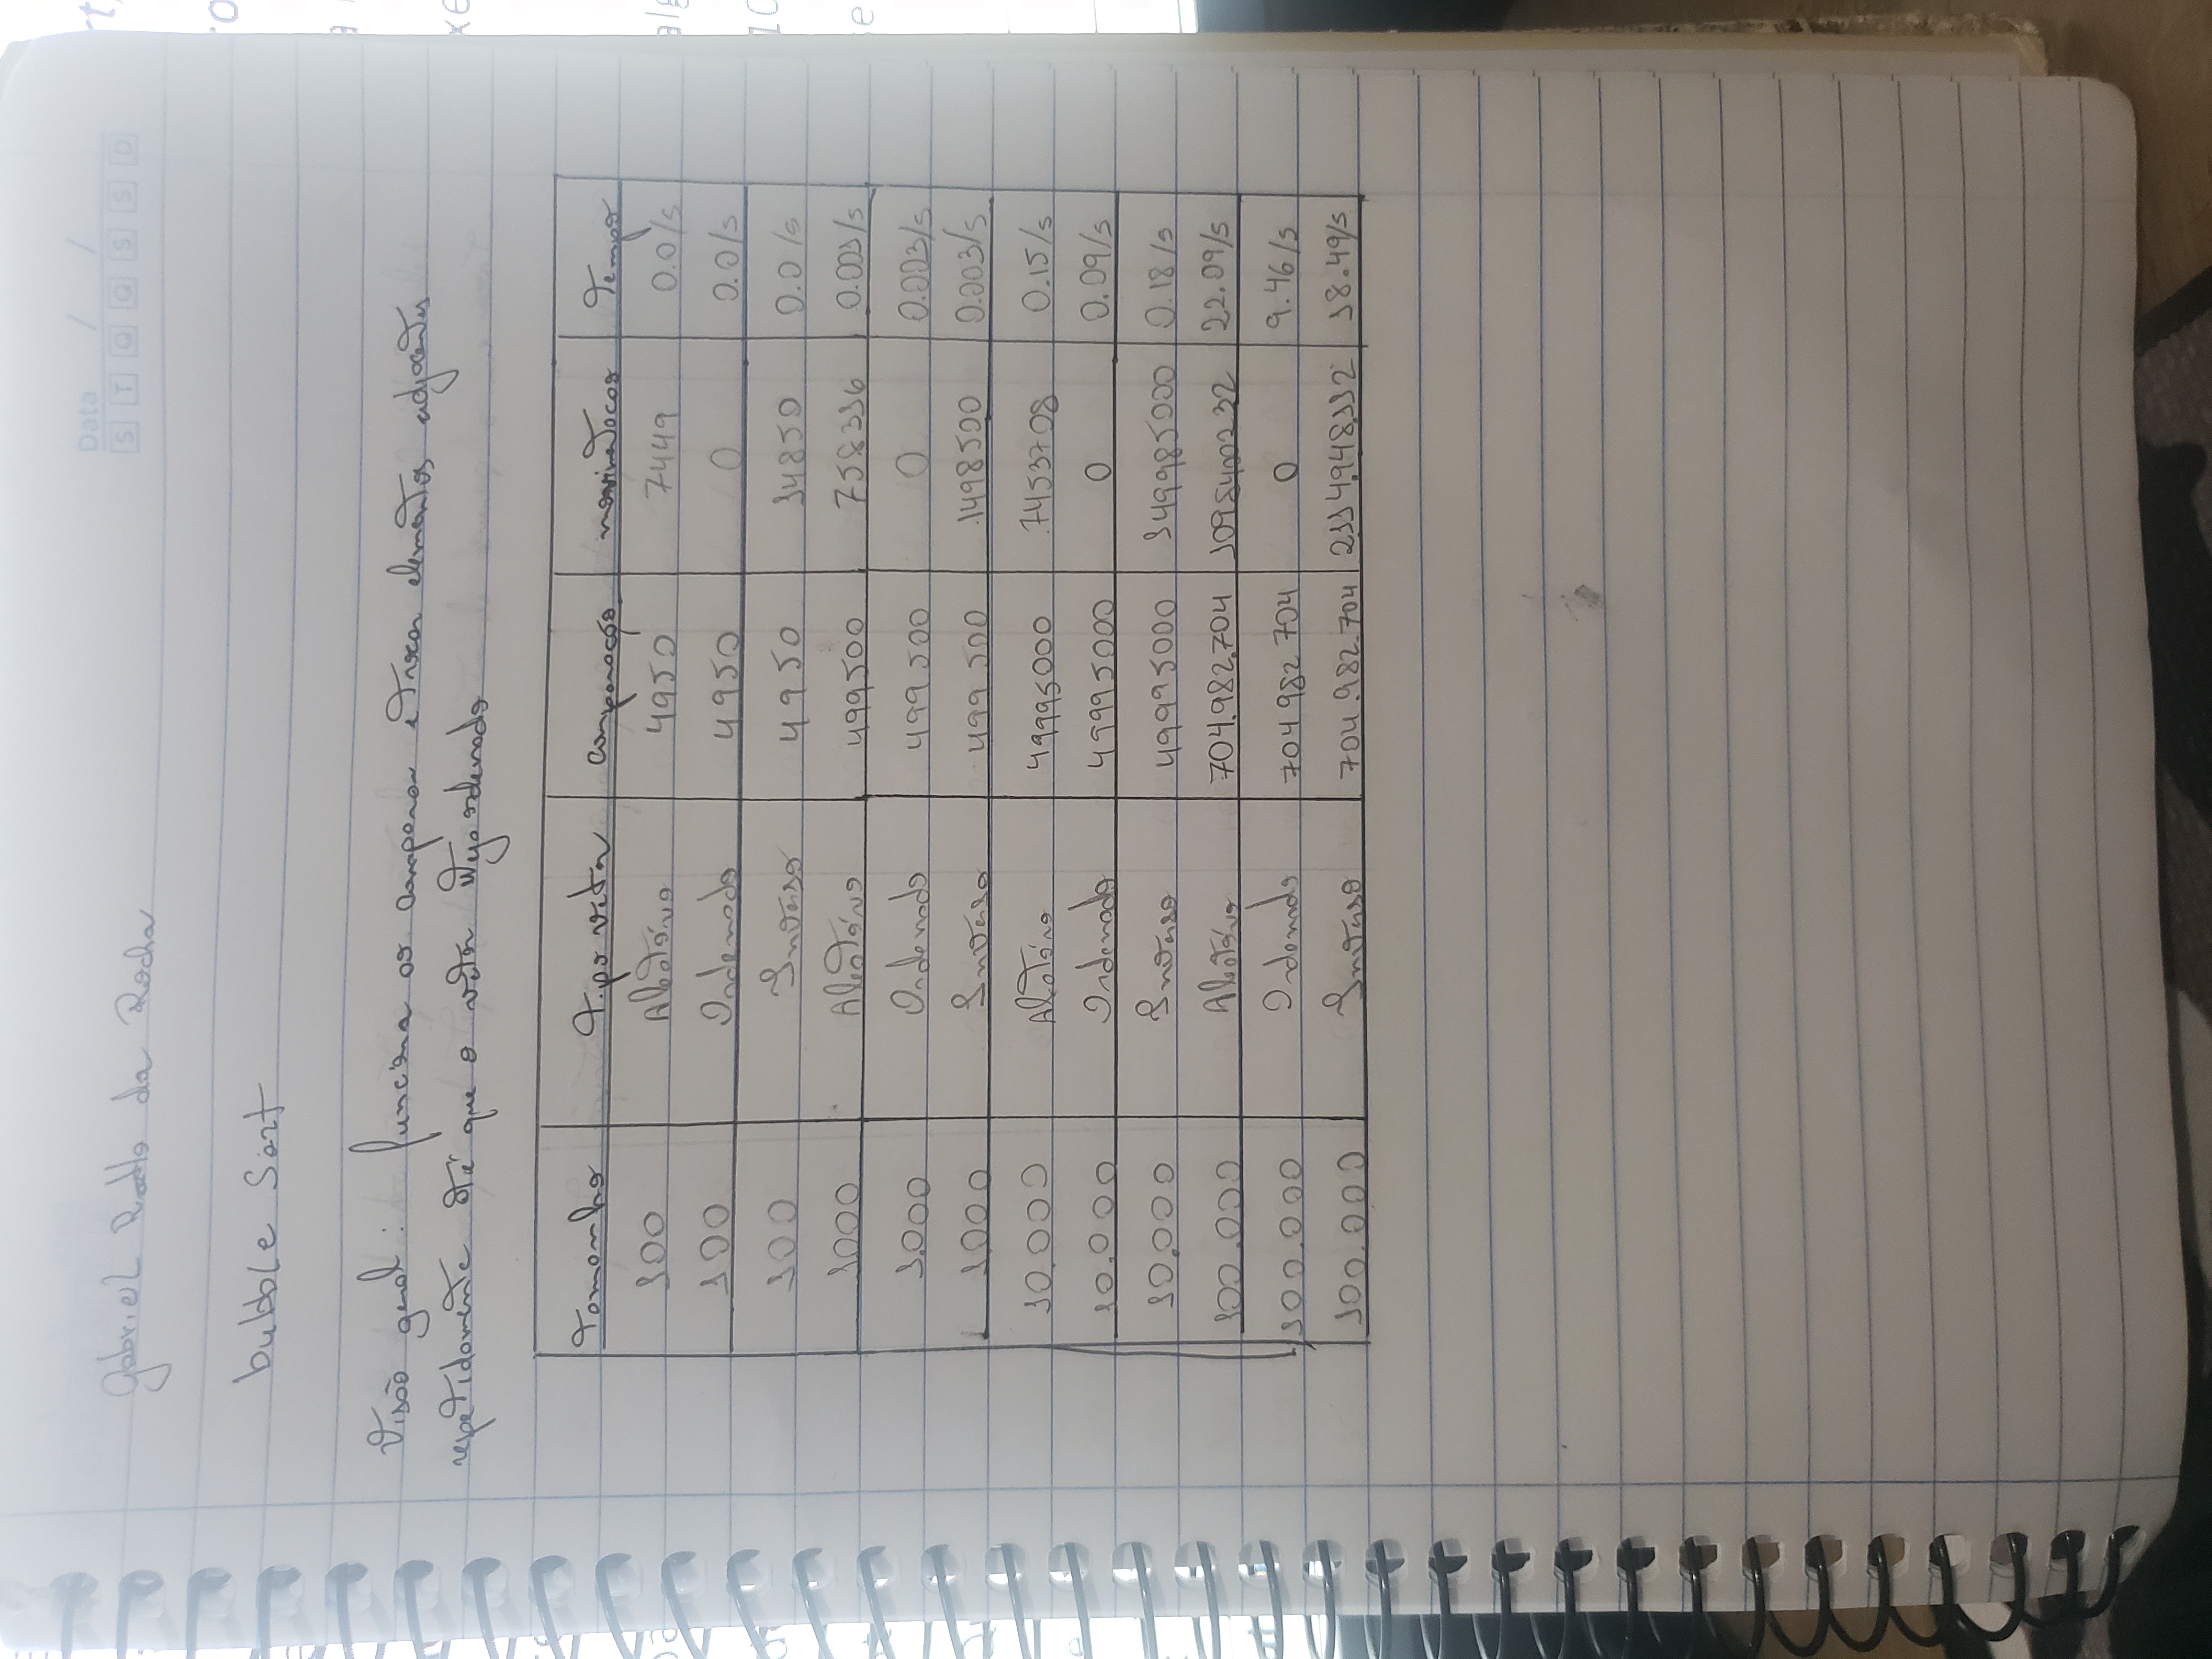 Data / /
S T Q Q S S D
Gabriel da Rocha
bubble Sort
Visão geral : funciona ao comparar e trocar elementos adjacentes
repetidamente até que o vetor seja ordenado
Tamanho Tipo vetor comparação Tempo
100 Aleatório 4950 7449 0.0/s
100 Ordenado 4950 0 0.0/s
100 Inverso 4950 14850 0.0/s
1000 Aleatório 499500 758316 0.003/s
1.000 Ordenado 499500 0 0.003/s
1.000 Inverso 499500 1498500 0.003/s
10.000 Aleatório 49995000 7453708 0.15/s
10.000 Ordenado 49995000 0 0.09/s
10.000 Inverso 49995000 149985000 0.18/s
100.000 Aleatório 704.982.704 1095400232 22.09/s
100.000 Ordenado 704982704 0 9.46/s
100.000 Inverso 704.982.704 2114.948.112 18.49/s